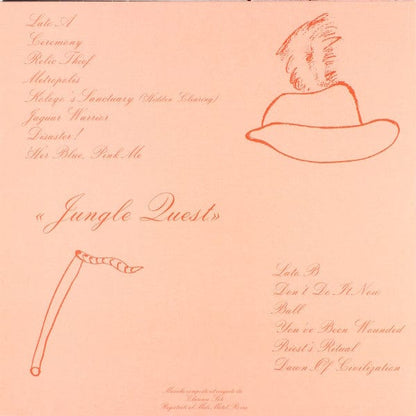 Lato A
Ceremony
Relic Thief
Metropolis
Kologo's Sanctuary (Hidden Clearing)
Jaguar Warrior
Disaster!
Her Blue, Pink Me
« Jungle Quest»
Lato B
Don't Do It Now
Ball
You've Been Wounded
Priest's Ritual
Dawn Of Civilization